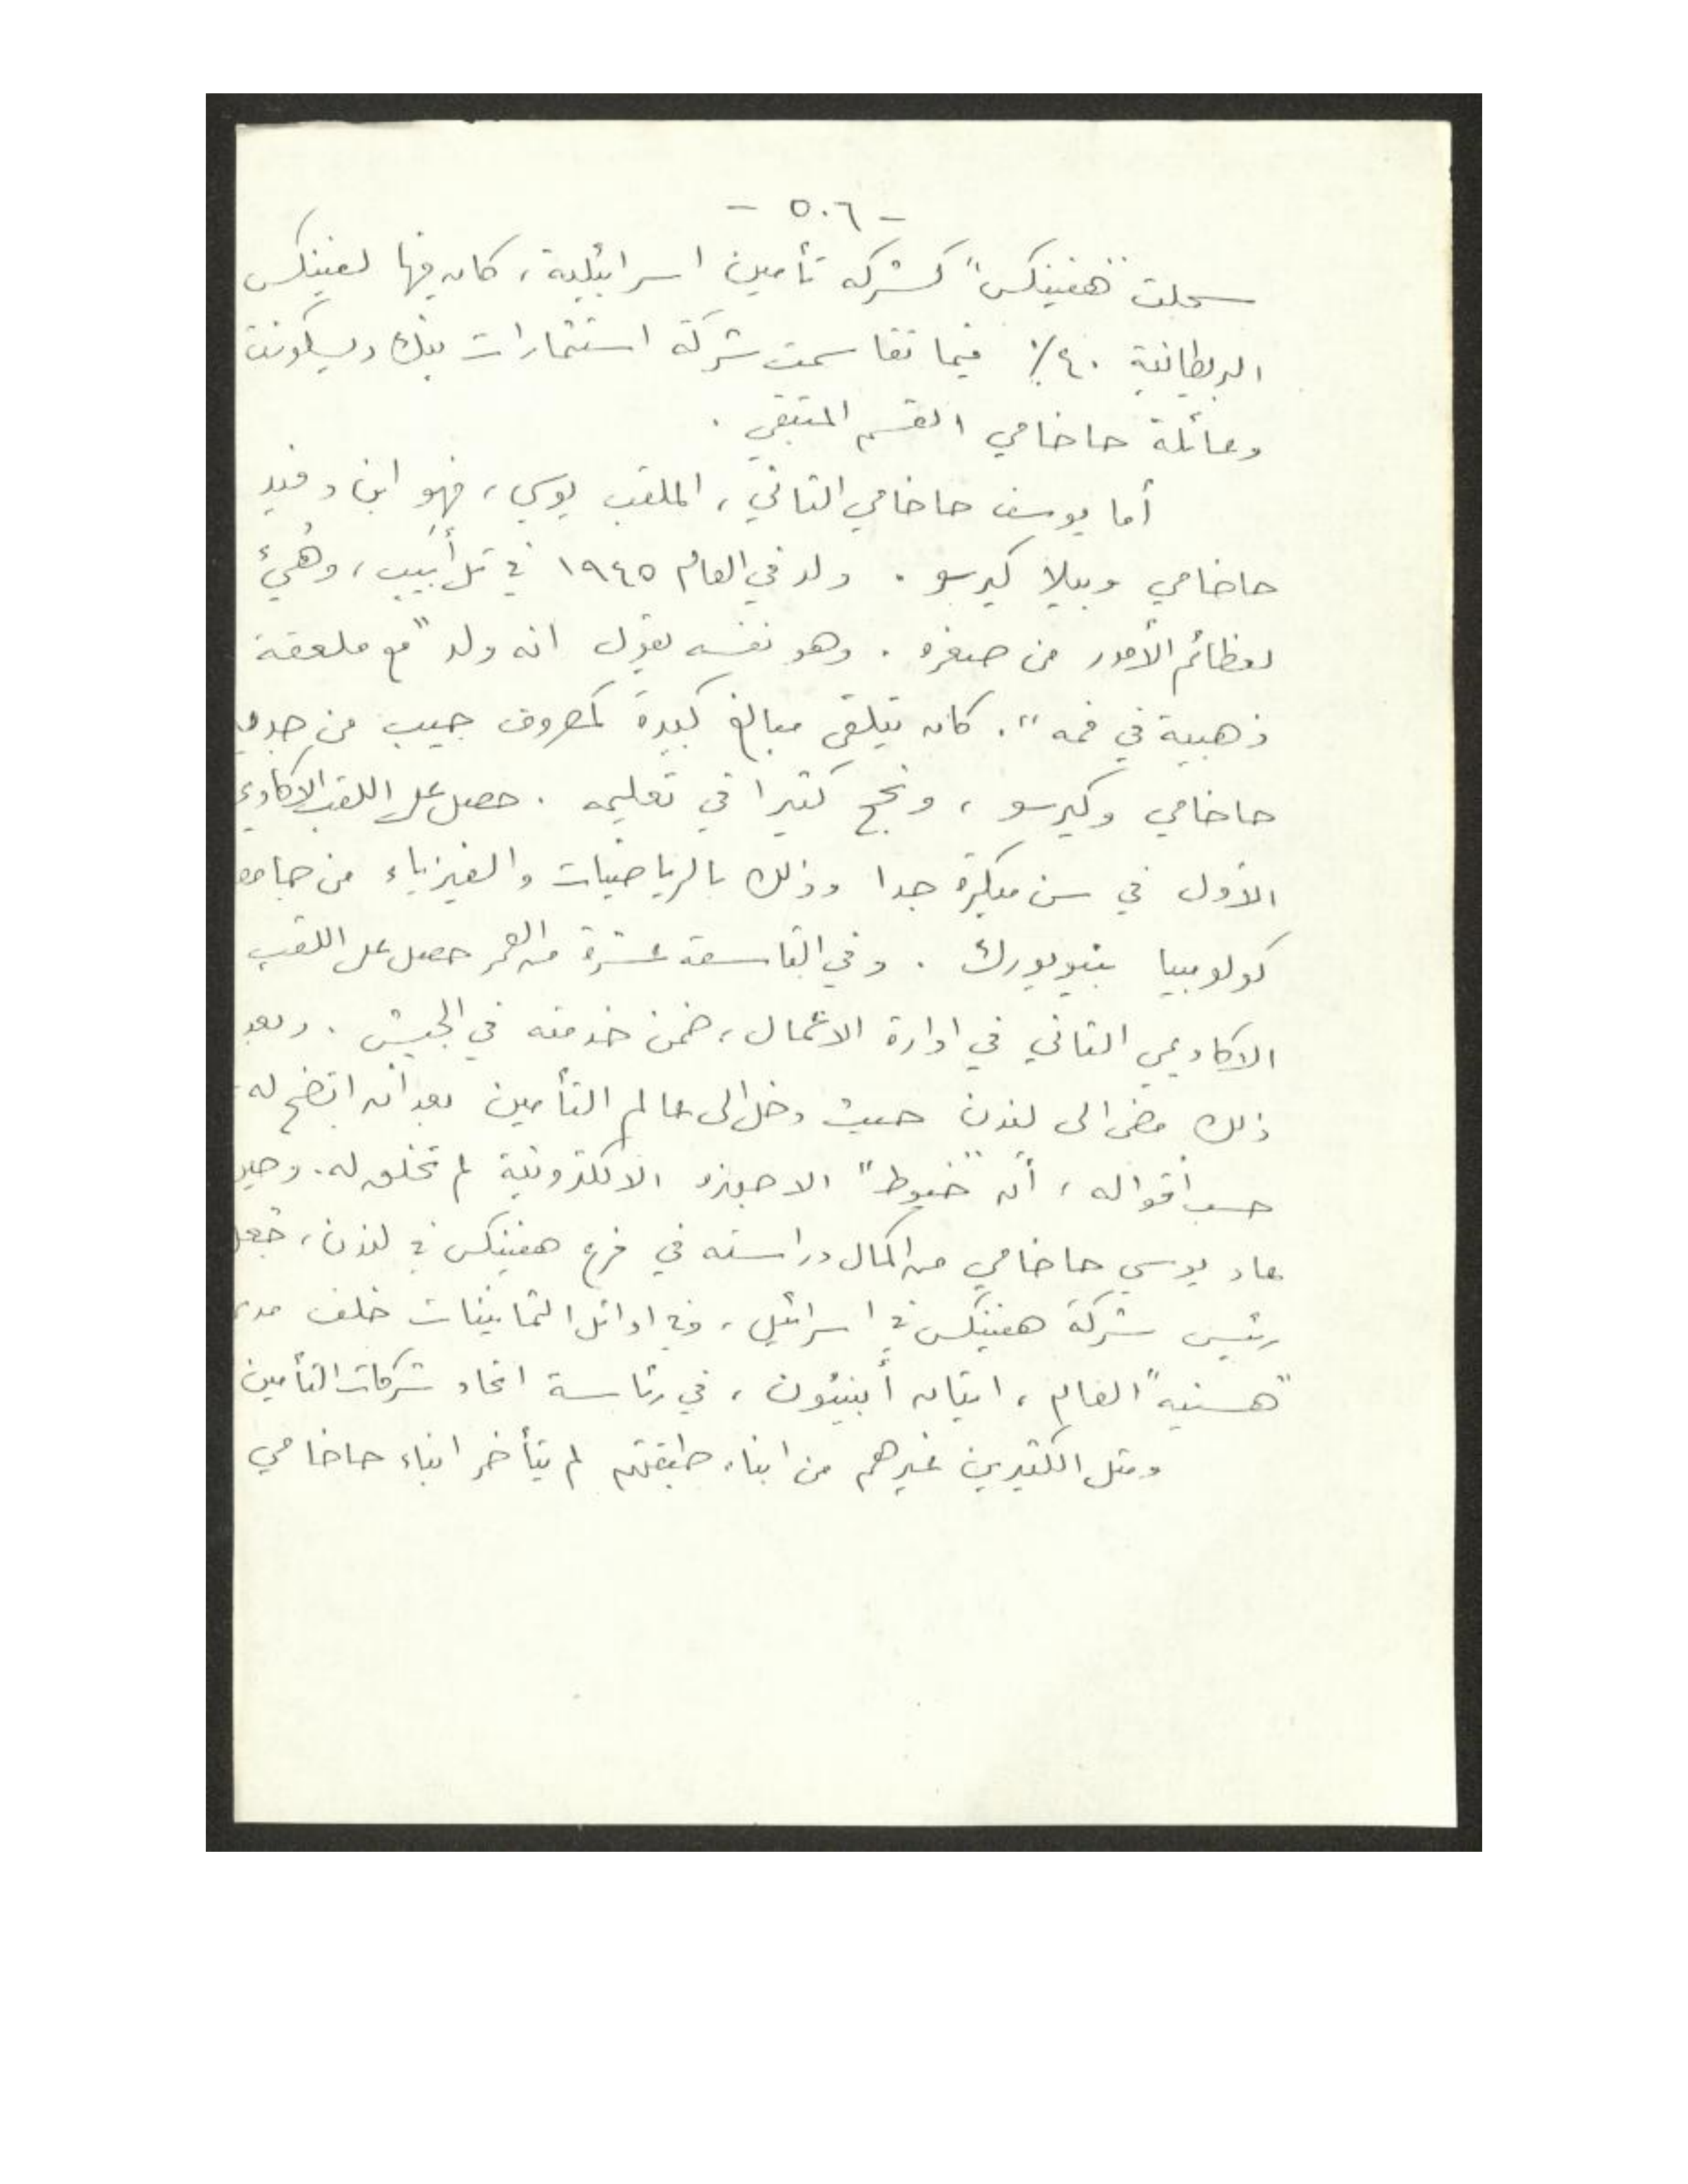 - ٥٠٦ -
سجلت "هفينكس" كشركة تأمين اسرائيلية، كان فيها لفينكس
البريطانية ٤٠٪ فيما تقاسمت شركة استثمارات بنك ديسكونت
وعائلة حاخامي القسم المتبقي .
أما يوسف حاخامي الثاني، الملقب يوسي، فهو ابن دفيد
حاخامي وبيلا كيرسو . ولد في العام ١٩٤٥ في تل أبيب، وهُيئ
لعظائم الأمور من صغره . وهو نفسه يقول انه ولد "مع ملعقة
ذهبية في فمه". كان يتلقى مبالغ كبيرة كمصروف جيب من جديه
حاخامي وكيرسو ، ونجح كثيرا في تعليمه . حصل على اللقب الاكاديمي
الأول في سن مبكرة جدا وذلك بالرياضيات والفيزياء من جامعة
كولومبيا بنيويورك . وفي التاسعة عشرة من العمر حصل على اللقب
الاكاديمي الثاني في ادارة الاعمال، ضمن خدمته في الجيش . وبعد
ذلك مضى الى لندن حيث دخل الى عالم التأمين بعد أن اتضح له،
حسب أقواله ، أن "خيوط" الاجهزة الالكترونية لم تخلق له. وحين
عاد يوسي حاخامي من اكمال دراسته في فرع هفينكس في لندن، جعل
رئيس شركة هفينكس في اسرائيل، وفي اوائل الثمانينات خلف مدير
"هسنيه" العام ، ايتان أبنيئون ، في رئاسة اتحاد شركات التأمين
ومثل الكثيرين غيرهم من ابناء طبقتهم لم يتأخر ابناء حاخامي